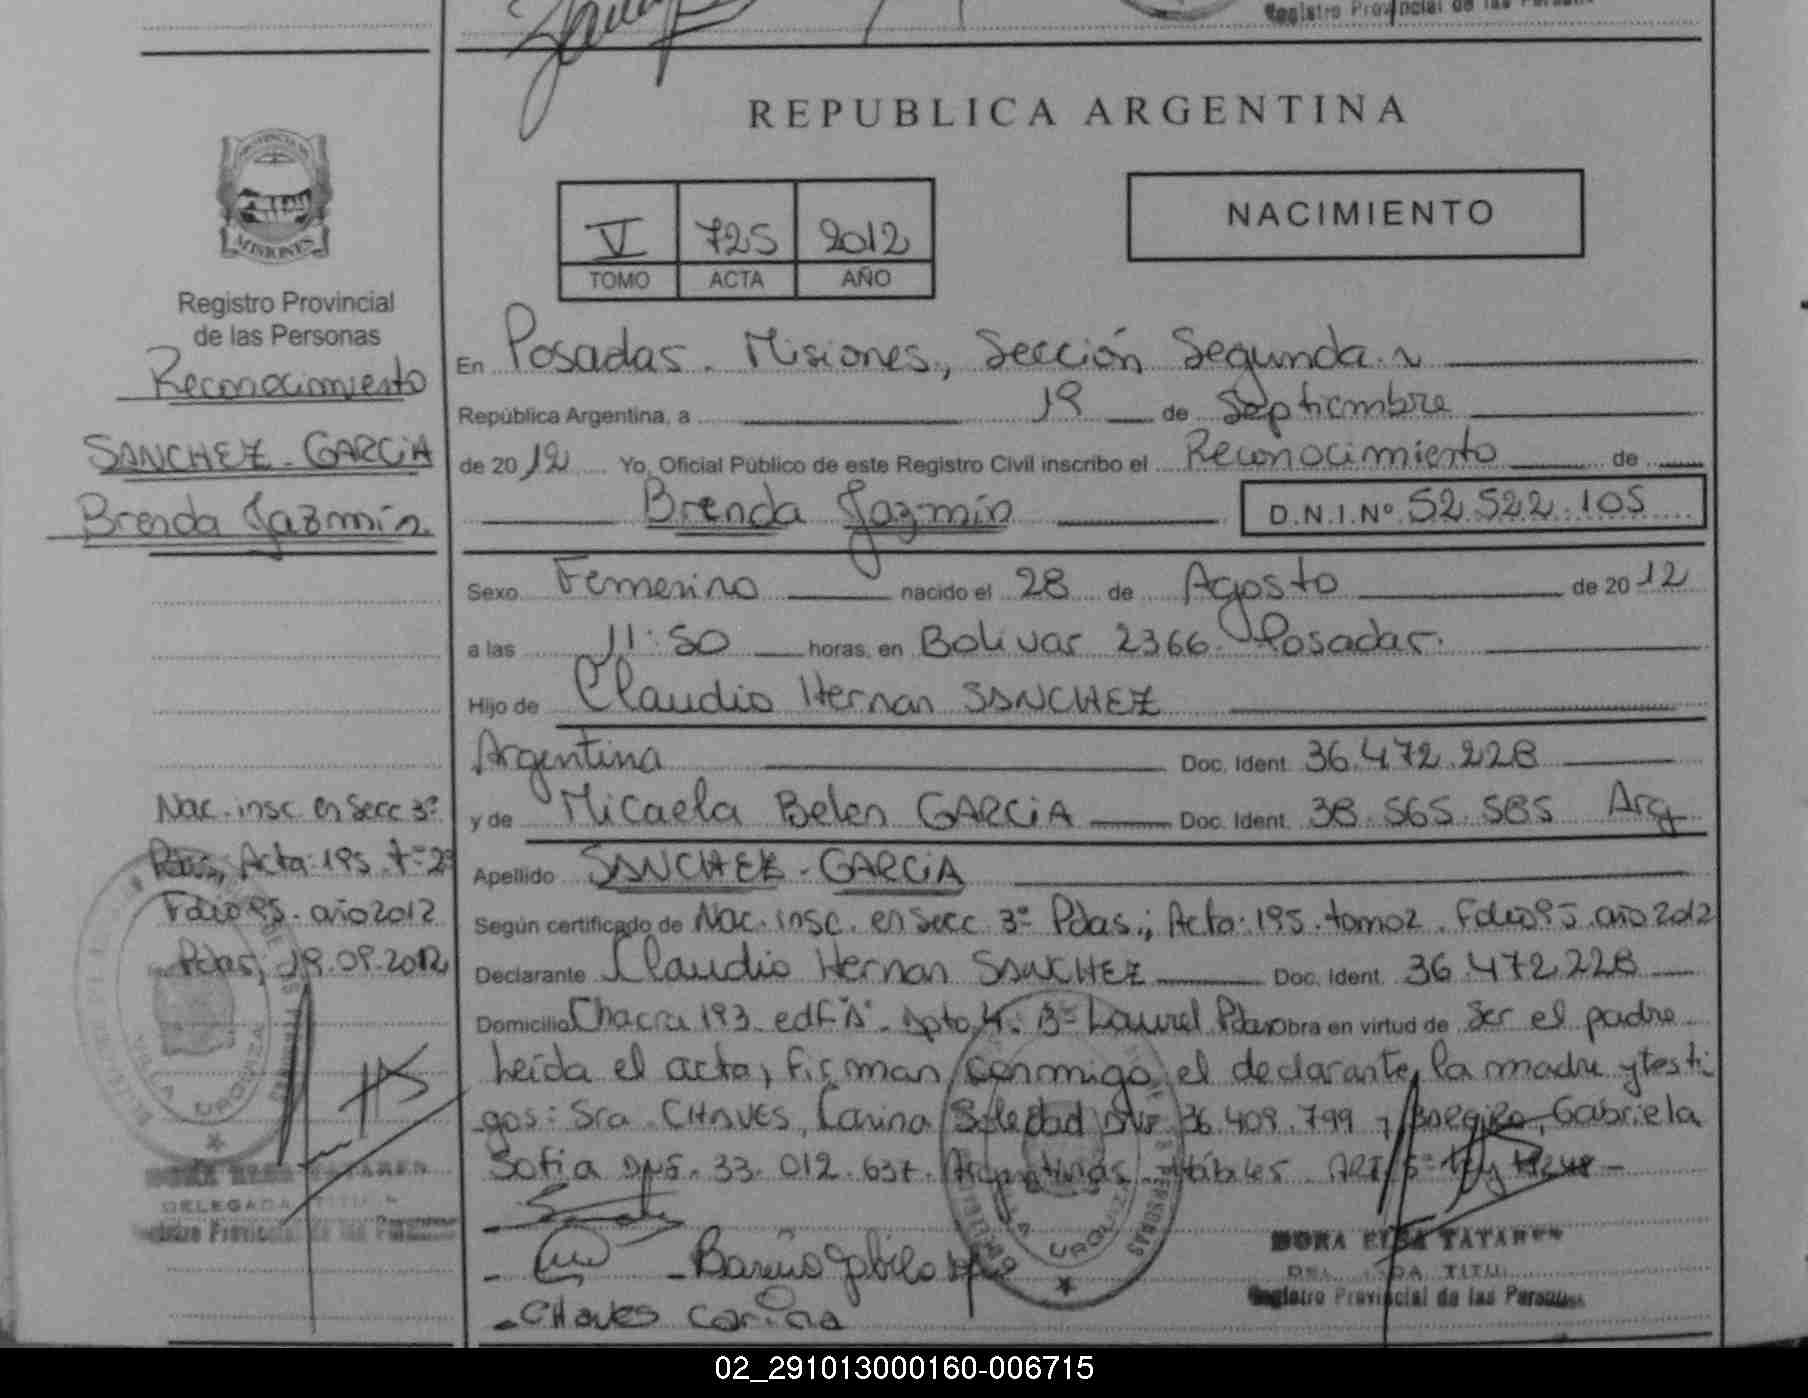 Registro Provincial de las Personas
REPUBLICA ARGENTINA
MISIONES
Registro Provincial
de las Personas
Reconocimiento
SANCHEZ - GARCIA
Brenda Jazmín
NACIMIENTO
V 725 2012
TOMO ACTA AÑO
En Posadas. Misiones, Sección Segunda.
República Argentina, a 19 de Septiembre
de 2012 Yo, Oficial Público de este Registro Civil inscribo el Reconocimiento de
Brenda Jazmín D.N.I.Nº 52.522.105
Sexo Femenino nacido el 28 de Agosto de 2012
a las 11:50 horas, en Bolivar 2366. Posadas.
Hijo de Claudio Hernan SANCHEZ
Argentina Doc. Ident. 36.472.228
y de Micaela Belen GARCIA Doc. Ident. 38.565.585 Arg
Apellido SANCHEZ - GARCIA
Según certificado de Nac. insc. en Secc 3º Pdas.; Acta: 195. tomo 2. Folio 95. año 2012
Declarante Claudio Hernan SANCHEZ Doc. Ident. 36.472.228
Domicilio Chacra 193. edf "A". Dpto 4. Bº Laurel Pdas obra en virtud de ser el padre
Leída el acta, firman conmigo el declarante, la madre y testi-
gos: Sra. CHAVES, Carina Soledad DNI. 36.409.799 y Gabriela
Sofia DNI. 33.012.637. Argentinas. Hábiles. ART. 5º Ley
Nac. insc. en Secc 3º
Pdas, Acta: 195. tº 2º
Folio 95. año 2012
Pdas, 19.09.2012
VILLA URQUIZA
DORA ELSA TATAREN
DELEGADA TITU
Registro Provincial de las Personas
VILLA URQUIZA
CHAVES Carina
DORA ELSA TATAREN
TITU
Registro Provincial de las Personas
02_291013000160-006715